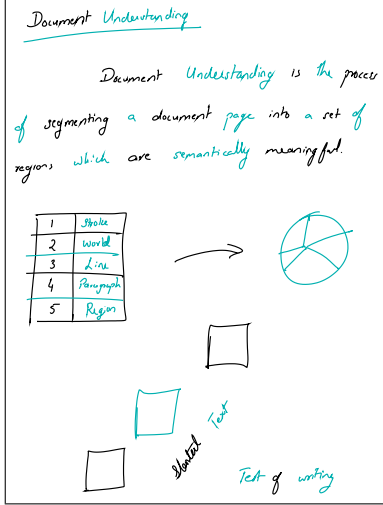 Document Understanding
Document Understanding is the process
of segmenting a document page into a set of
regions which are semantically meaningful.
1 Stroke
2 World
3 Line
4 Paragraph
5 Region
Text
Slanted
Test of writing